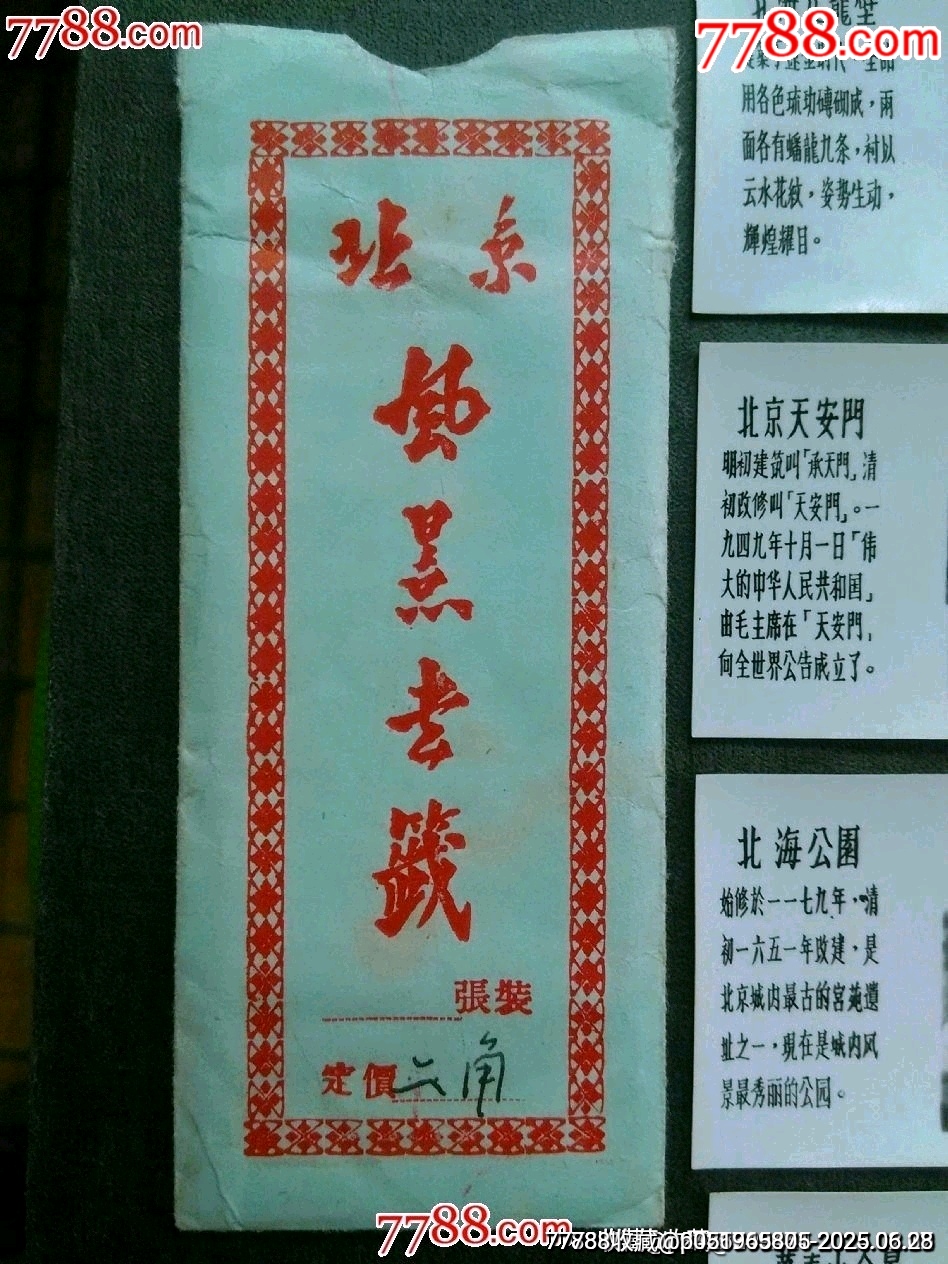 7788.com
7788.com
北京
風景书籤
張裝
定價 六角
用各色琉璃磚砌成，兩
面各有蟠龍九条，衬以
云水花紋，姿势生动，
輝煌耀目。
北京天安門
明初建筑叫「承天門」清
初改修叫「天安門」。一
九四九年十月一日「伟
大的中华人民共和国」
由毛主席在「天安門」
向全世界公告成立了。
北海公園
始修於一一七九年，清
初一六五一年改建，是
北京城内最古的宮苑遺
址之一，現在是城内风
景最秀丽的公园。
7788.com
7788收藏@p051965805-2025.06.28